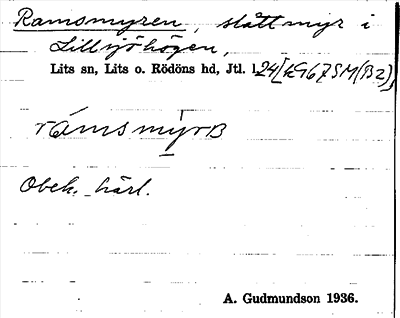 Ramsmyren, slåttmyr i
Lillsjöhögen,
Lits sn, Lits o. Rödöns hd, Jtl. l.
Obek. härl.
A. Gudmundson 1936.